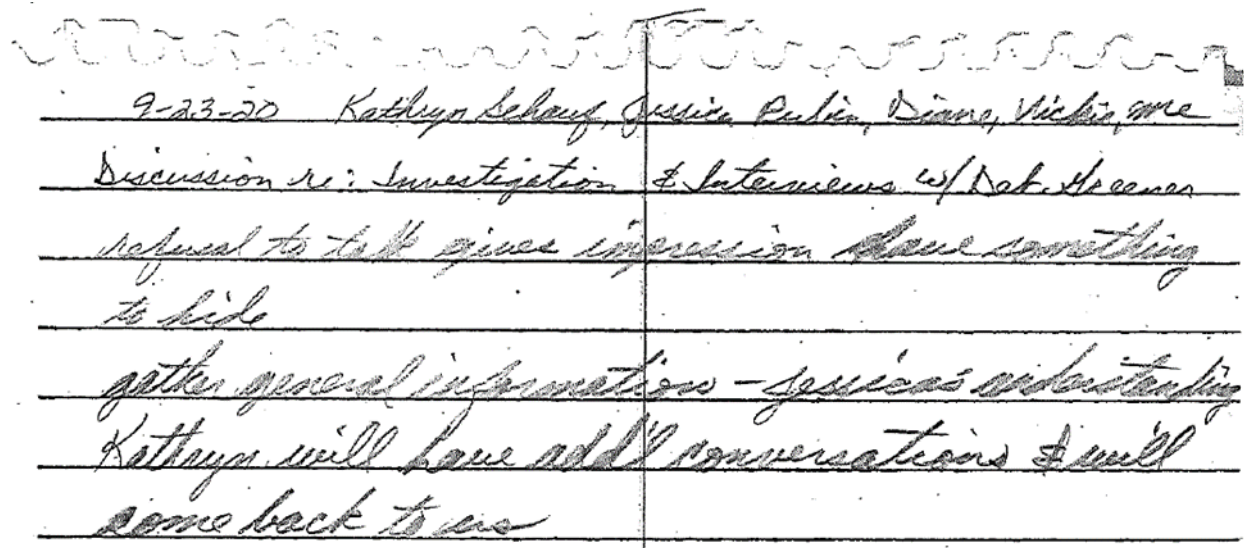 9-23-20 Kathryn Schauf, Jessica Rubin, Diane, Vickie, me
Discussion re: Investigation & Interviews w/ Det. Greenen
refusal to talk gives impression have something
to hide
gather general information - Jessica's understanding
Kathryn will have add'l conversations & will
come back to us